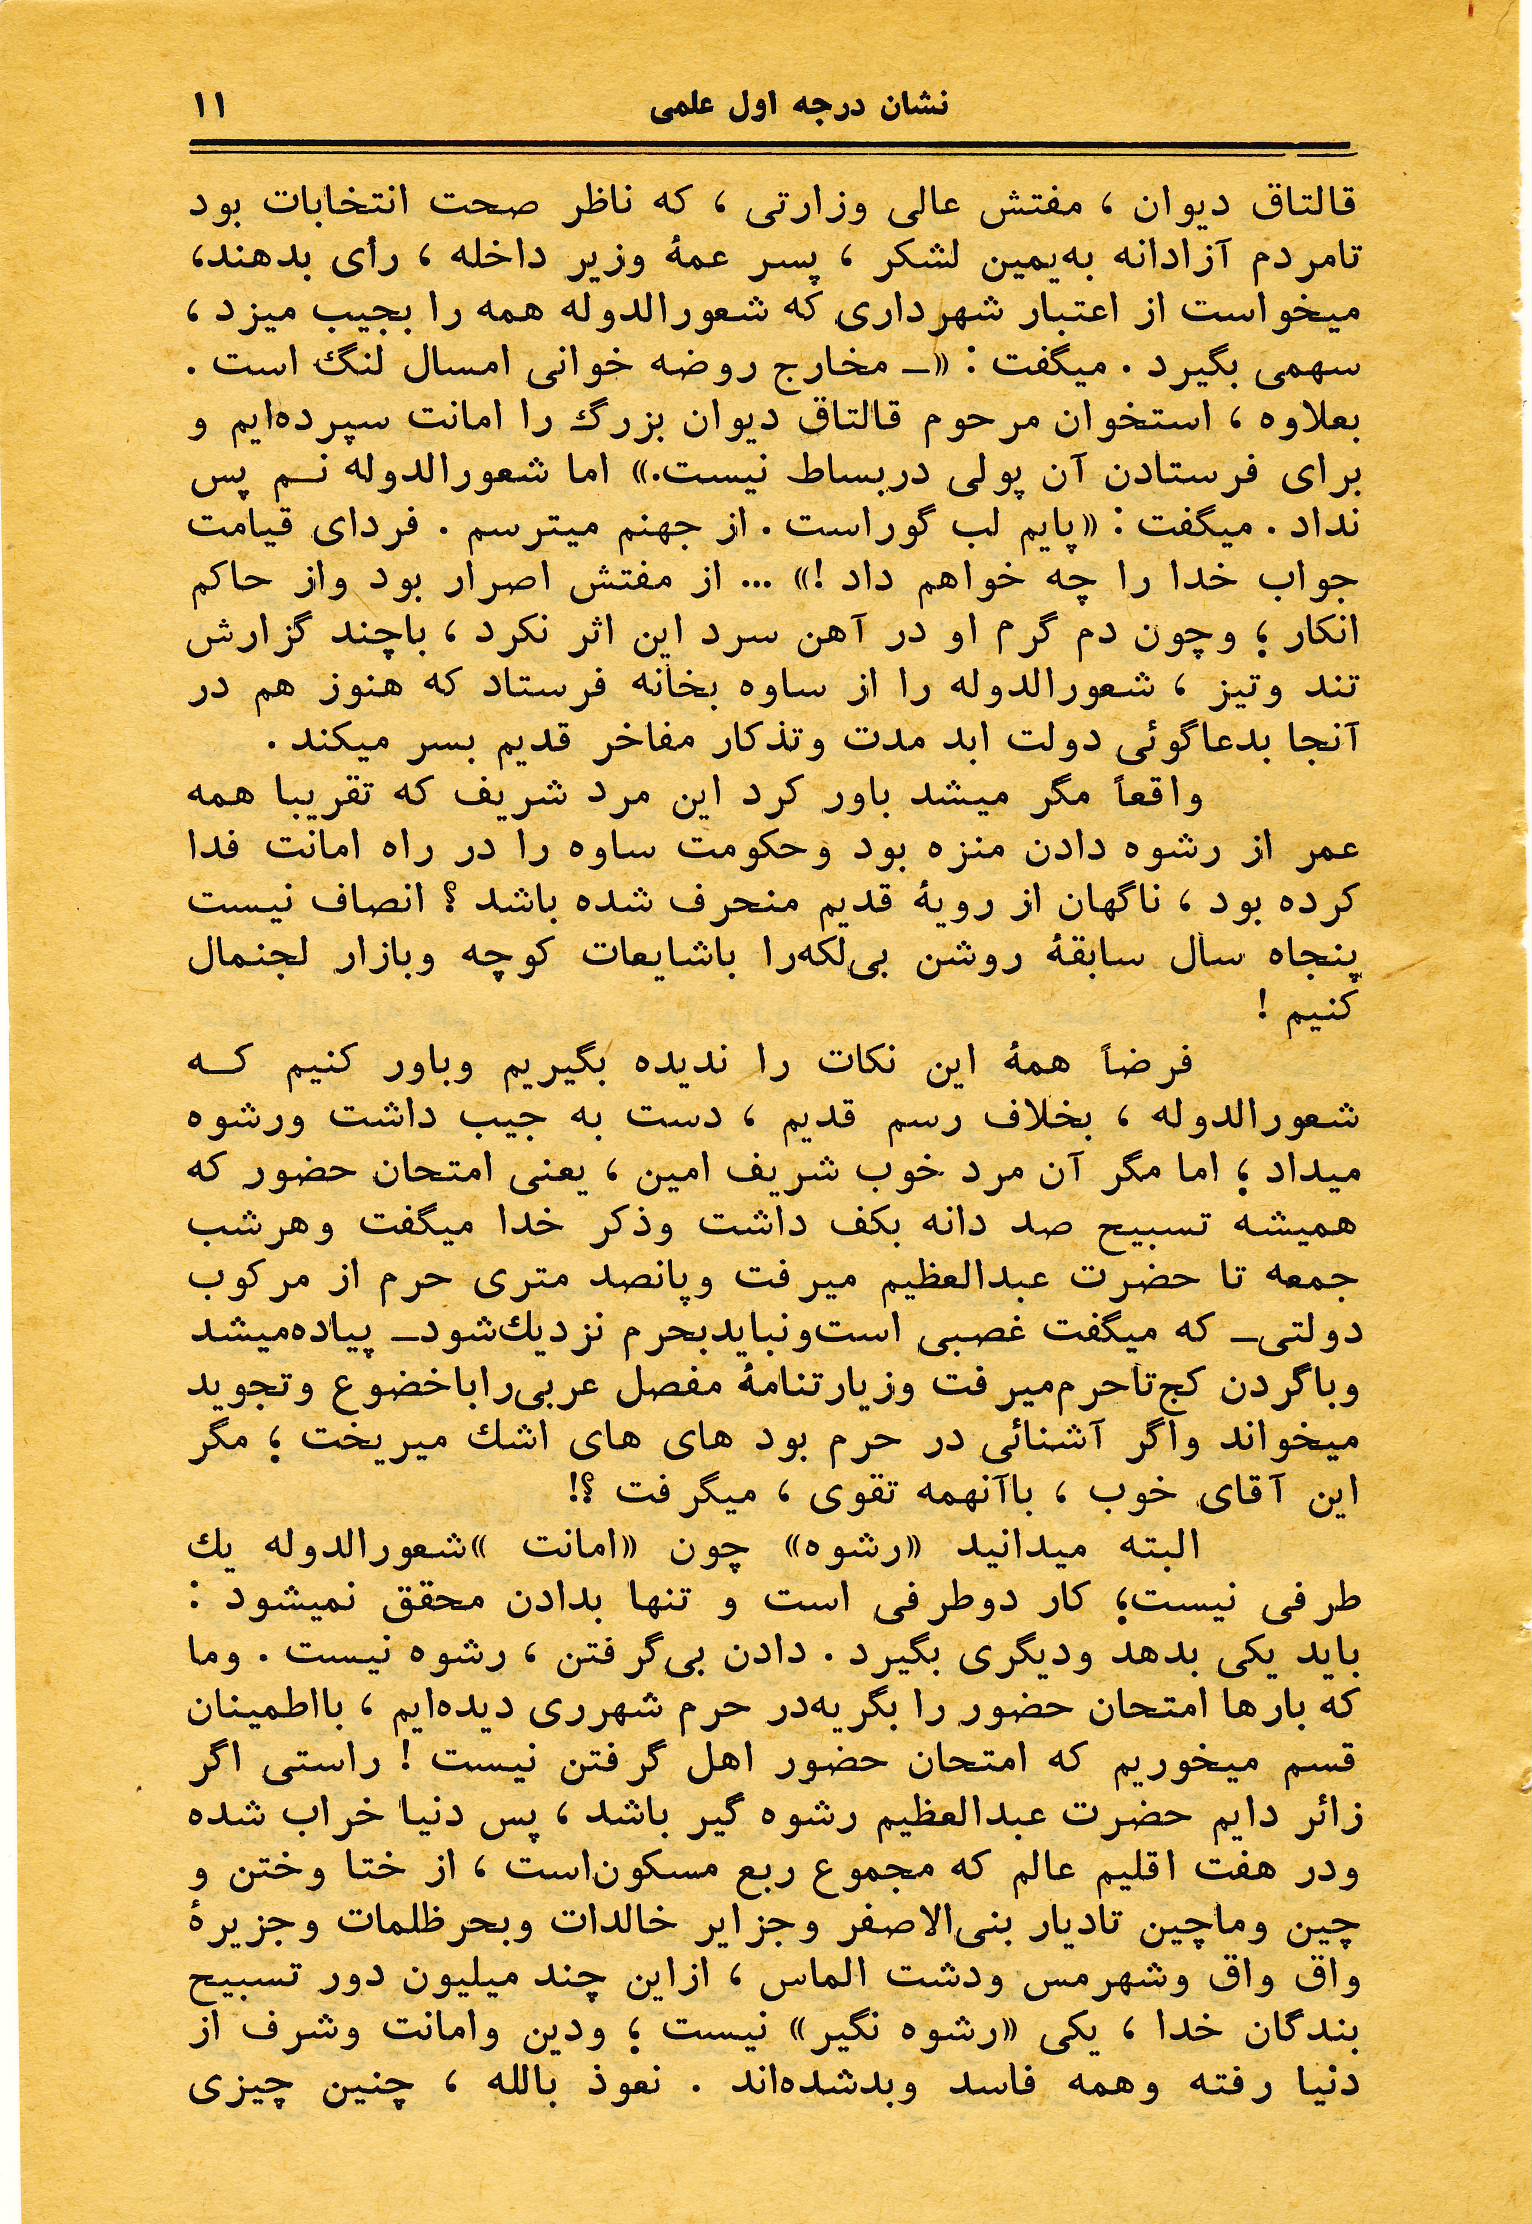 نشان درجه اول علمی ۱۱
قالتاق دیوان ، مفتش عالی وزارتی ، که ناظر صحت انتخابات بود
تامردم آزادانه به‌یمین لشکر ، پسر عمهٔ وزیر داخله ، رأی بدهند،
میخواست از اعتبار شهرداری که شعورالدوله همه را بجیب میزد ،
سهمی بگیرد . میگفت : «ـ مخارج روضه خوانی امسال لنگ است .
بعلاوه ، استخوان مرحوم قالتاق دیوان بزرگ را امانت سپرده‌ایم و
برای فرستادن آن پولی دربساط نیست.» اما شعورالدوله نــم پس
نداد . میگفت : «پایم لب گوراست . از جهنم میترسم . فردای قیامت
جواب خدا را چه خواهم داد !» ... از مفتش اصرار بود واز حاکم
انکار ؛ وچون دم گرم او در آهن سرد این اثر نکرد ، باچند گزارش
تند وتیز ، شعورالدوله را از ساوه بخانه فرستاد که هنوز هم در
آنجا بدعاگوئی دولت ابد مدت وتذکار مفاخر قدیم بسر میکند .
واقعاً مگر میشد باور کرد این مرد شریف که تقریبا همه
عمر از رشوه دادن منزه بود وحکومت ساوه را در راه امانت فدا
کرده بود ، ناگهان از رویهٔ قدیم منحرف شده باشد ؟ انصاف نیست
پنجاه سال سابقهٔ روشن بی‌لکه‌را باشایعات کوچه وبازار لجنمال
کنیم !
فرضاً همهٔ این نکات را ندیده بگیریم وباور کنیم کــه
شعورالدوله ، بخلاف رسم قدیم ، دست به جیب داشت ورشوه
میداد ؛ اما مگر آن مرد خوب شریف امین ، یعنی امتحان حضور که
همیشه تسبیح صد دانه بکف داشت وذکر خدا میگفت وهرشب
جمعه تا حضرت عبدالعظیم میرفت وپانصد متری حرم از مرکوب
دولتی‌ـ که میگفت غصبی است‌ونبایدبحرم نزدیك‌شودـ پیاده‌میشد
وباگردن کج‌تاحرم‌میرفت وزیارتنامهٔ مفصل عربی‌راباخضوع وتجوید
میخواند واگر آشنائی در حرم بود های های اشك میریخت ؛ مگر
این آقای خوب ، باآنهمه تقوی ، میگرفت ؟!
البته میدانید «رشوه» چون «امانت »شعورالدوله یك
طرفی نیست؛ کار دوطرفی است و تنها بدادن محقق نمیشود :
باید یکی بدهد ودیگری بگیرد . دادن بی‌گرفتن ، رشوه نیست . وما
که بارها امتحان حضور را بگریه‌در حرم شهرری دیده‌ایم ، بااطمینان
قسم میخوریم که امتحان حضور اهل گرفتن نیست ! راستی اگر
زائر دایم حضرت عبدالعظیم رشوه گیر باشد ، پس دنیا خراب شده
ودر هفت اقلیم عالم که مجموع ربع مسکون‌است ، از ختا وختن و
چین وماچین تادیار بنی‌الاصفر وجزایر خالدات وبحرظلمات وجزیرهٔ
واق واق وشهرمس ودشت الماس ، ازاین چند میلیون دور تسبیح
بندگان خدا ، یکی «رشوه نگیر» نیست ؛ ودین وامانت وشرف از
دنیا رفته وهمه فاسد وبدشده‌اند . نعوذ بالله ، چنین چیزی